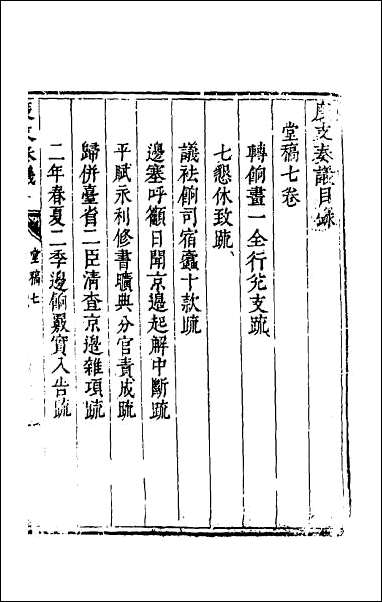 度支奏議目錄
堂稿七卷
轉餉畫一全行兊支疏
七懇休致疏
議祛餉司宿蠹十款疏
邊塞呼籲日聞京邊起解中斷疏
平賦永利修書曠典分官責成疏
歸併臺省二臣清查京邊雜項疏
二年春夏二季邊餉覈實入告疏
堂稿七